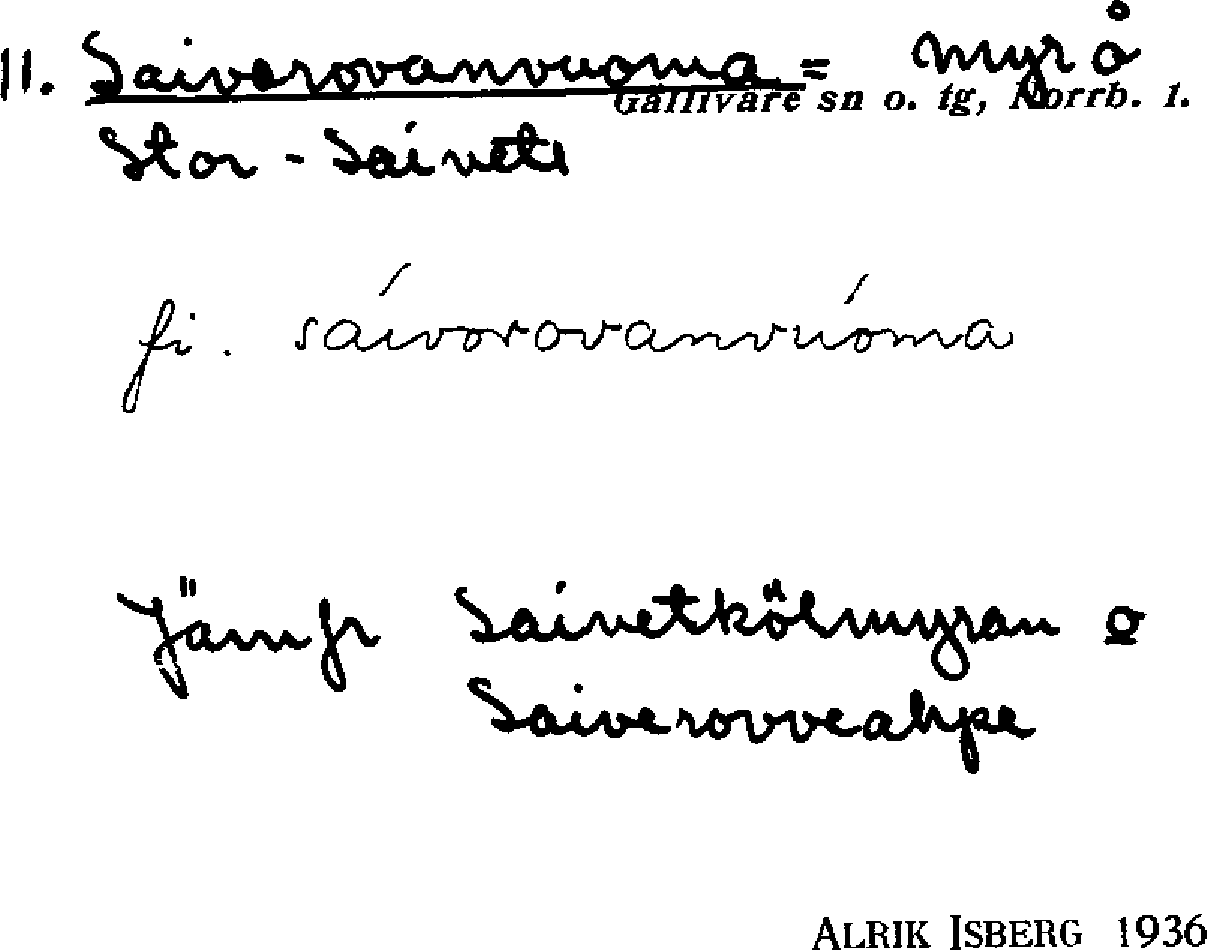 11. Saiverovanvuoma = myr å
Gällivare sn o. tg, Norrb. l.
Stor-Saivets
fi. sáivorovanvúoma
Jämfr Saivetkölmyran o
Saiverovveahpe
ALRIK ISBERG 1936